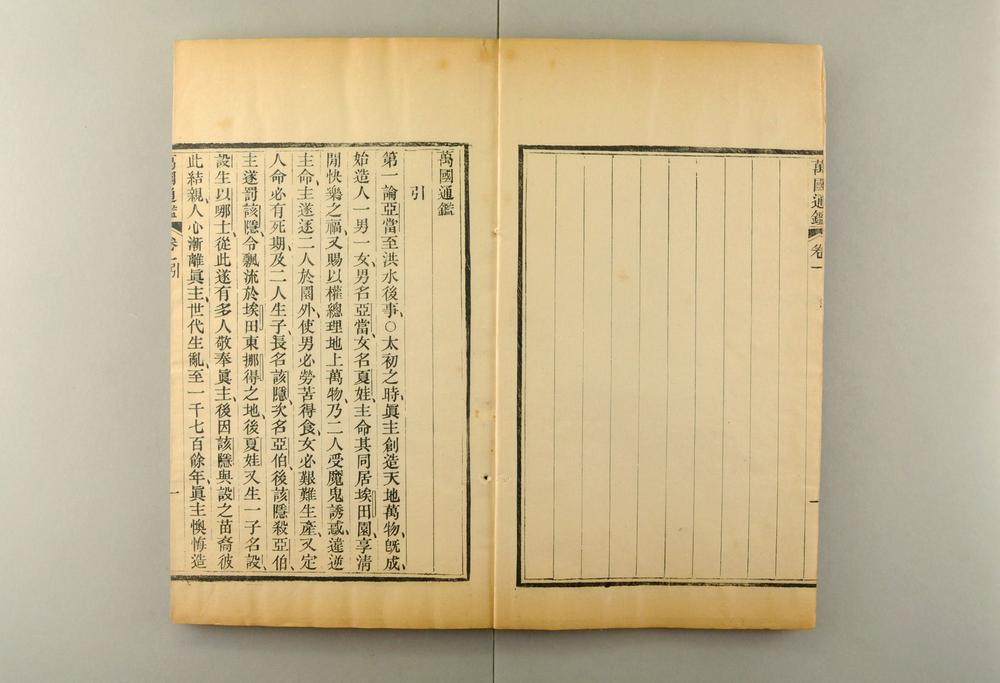 萬國通鑑 卷一
一
萬國通鑑
引
第一論亞當至洪水後事○太初之時、眞主創造天地萬物、旣成、
始造人一男一女、男名亞當、女名夏娃、主命其同居埃田園、享清
閒快樂之福、又賜以權總理地上萬物、乃二人受魔鬼誘惑、違逆
主命、主遂逐二人於園外、使男必勞苦得食、女必艱難生產、又定
人命必有死期、及二人生子、長名該隱、次名亞伯、後該隱殺亞伯、
主遂罰該隱、令飄流於埃田東挪得之地、後夏娃又生一子名設、
設生以哪士、從此遂有多人敬奉眞主、後因該隱與設之苗裔彼
此結親、人心漸離眞主、世代生亂、至一千七百餘年、眞主懊悔造
萬國通鑑 卷一引
一